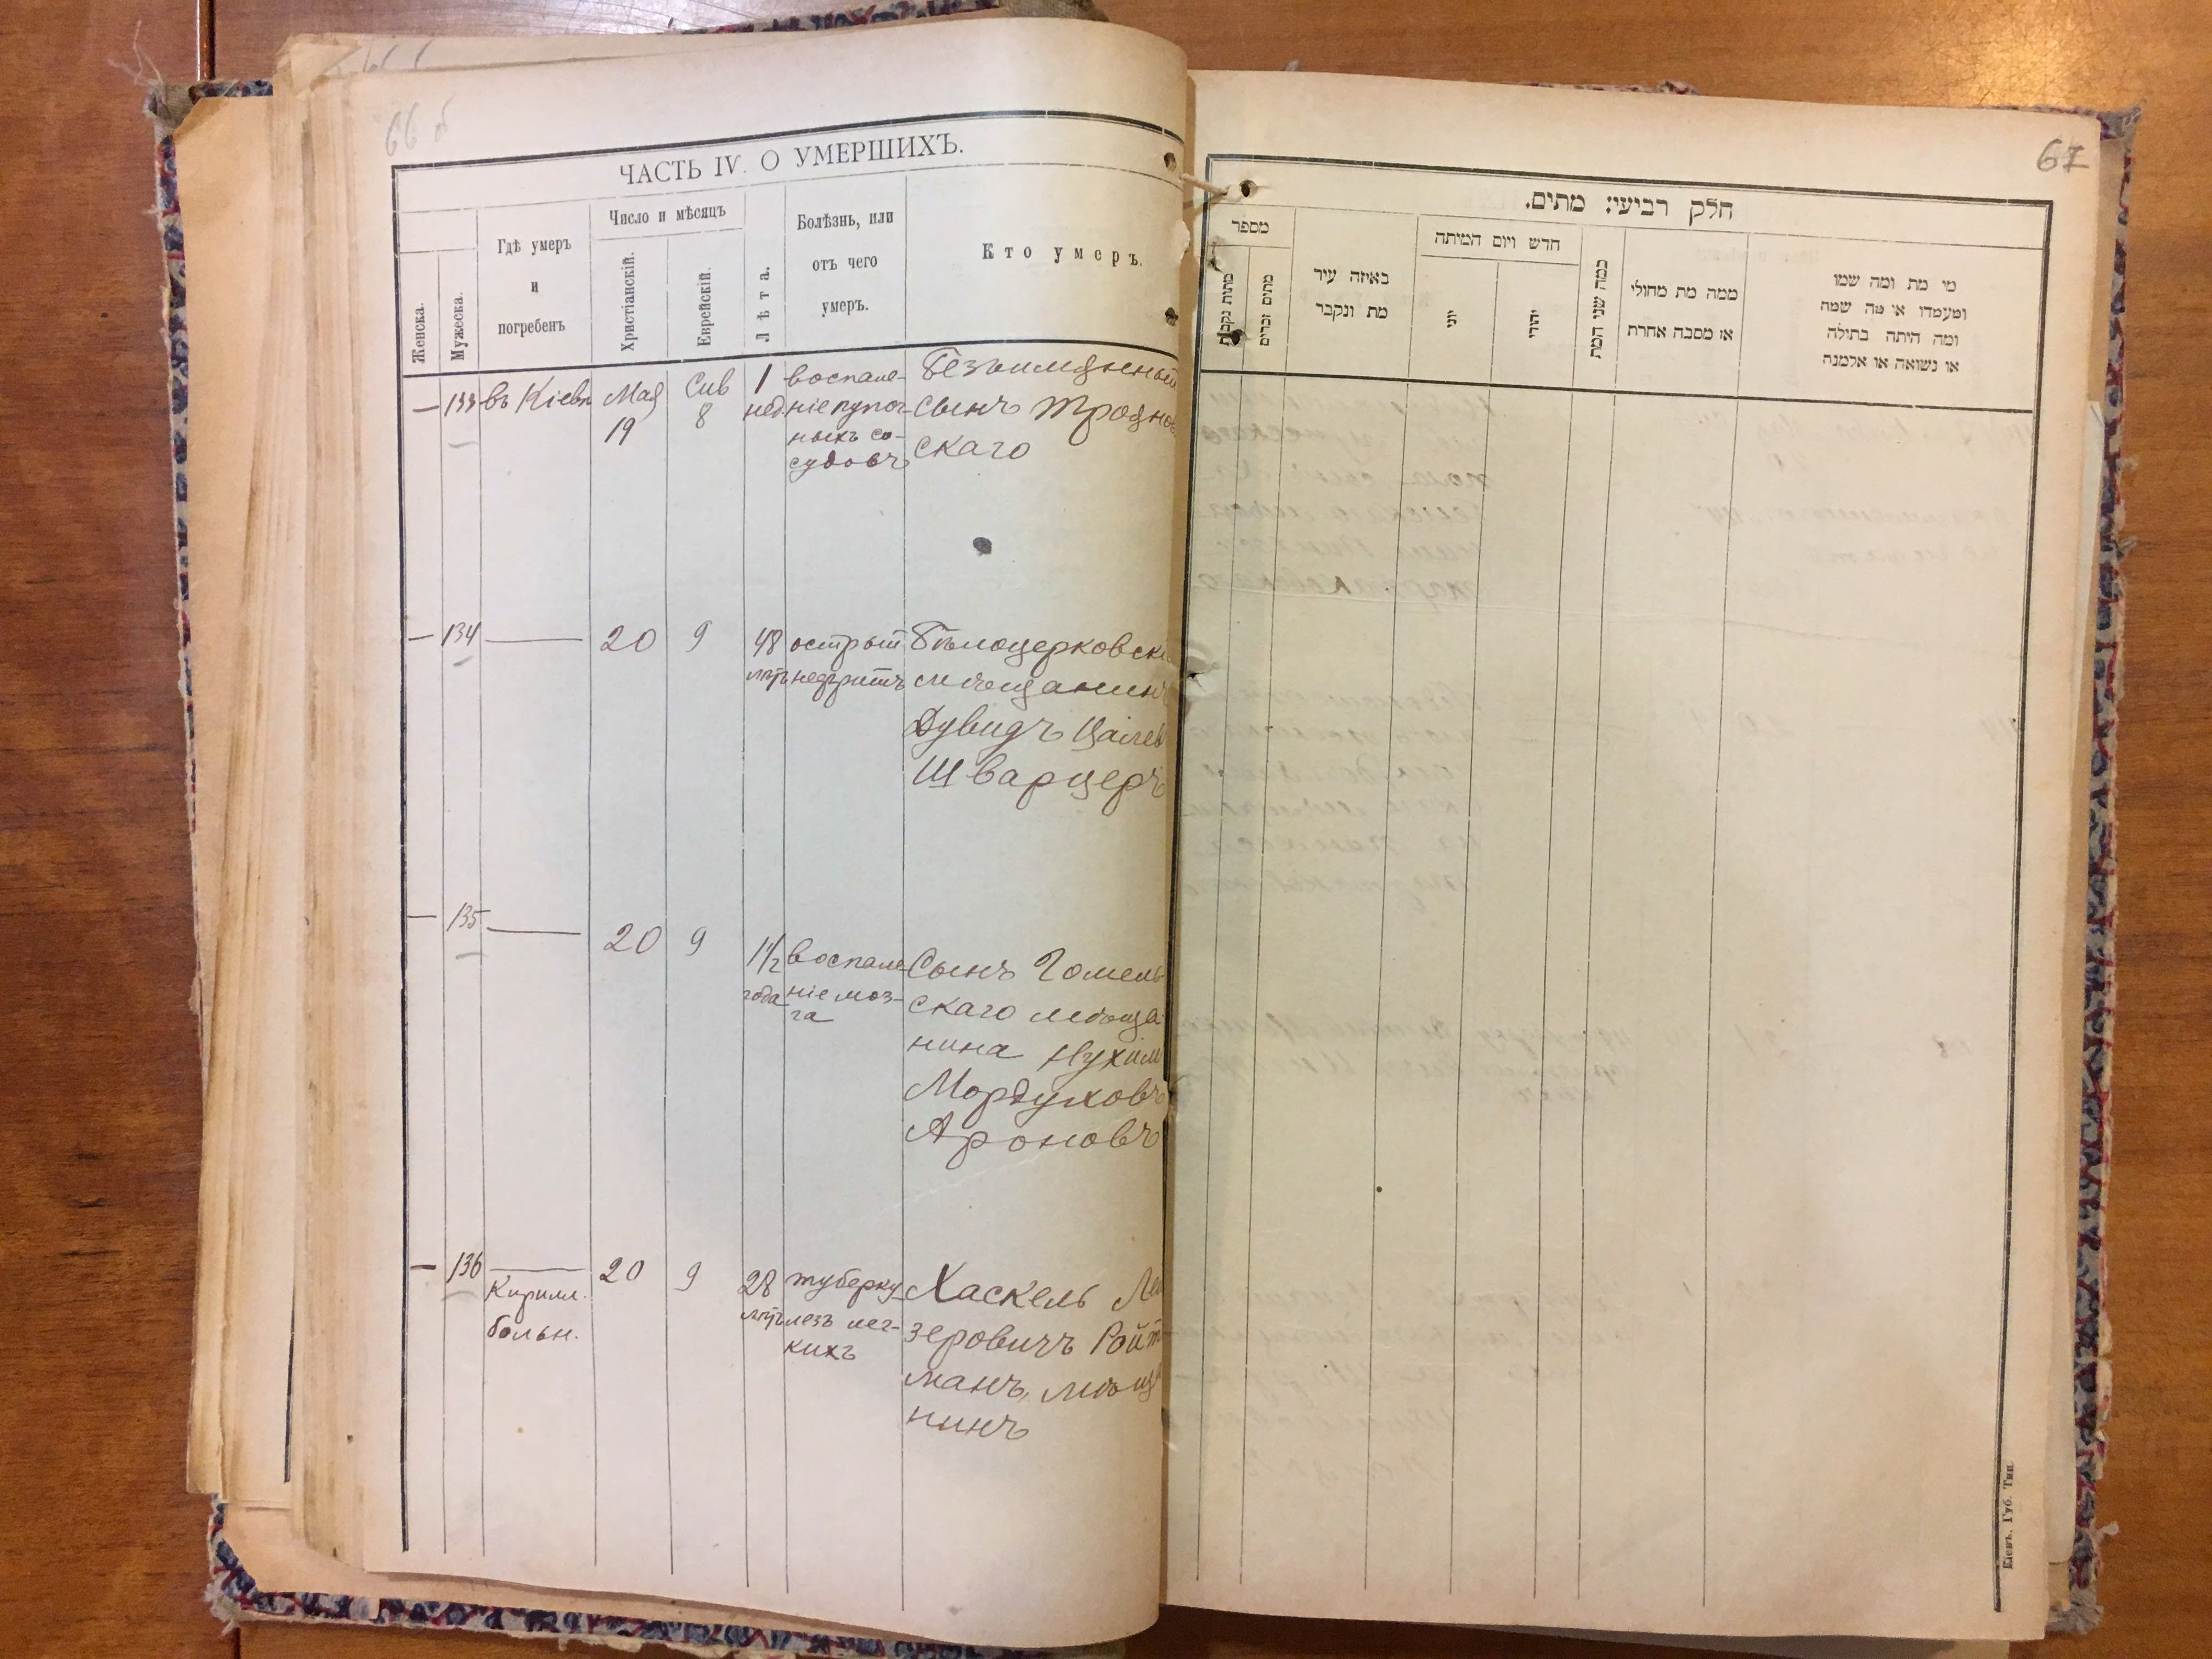 66 б
ЧАСТЬ IV. О УМЕРШИХЪ.
Женска.
Мужеска.
Гдѣ умеръ
и
погребенъ
Число и мѣсяцъ
Христіанскій.
Еврейскій.
Лѣта.
Болѣзнь, или
отъ чего
умеръ.
Кто умеръ.
— 133 въ Кіевѣ Мая 19 Сив 8
1 нед.
воспале-
ніе пупоч-
ныхъ со-
судовъ
сынъ
скаго
— 134 — 20 9
48 лѣтъ
острый
нефритъ
Бѣлоцерковскі
мѣщанинъ
Дувидъ
Шварцеръ
— 135 — 20 9
1 1/2 года
воспале-
ніе моз-
га
Сынъ Гомель
скаго мѣща
нина Нухим
Мордуховъ
Ароновъ
— 136 — 20 9
Кирилл.
больн.
28 лѣтъ
туберку-
лезъ лег-
кихъ
Хаскель Лей
зеровичъ Ройт
манъ, мѣща
нинъ
67
חלק רביעי: מתים.
מספר
מתות נקבות
מתים זכרים
באיזה עיר
מת ונקבר
חדש ויום המיתה
יוני
יהודי
כמה שני המת
ממה מת מחולי
או מסבה אחרת
מי מת ומה שמו
ומעמדו או מה שמה
ומה היתה בתולה
או נשואה או אלמנה
Кіевъ. Губ. Тип.